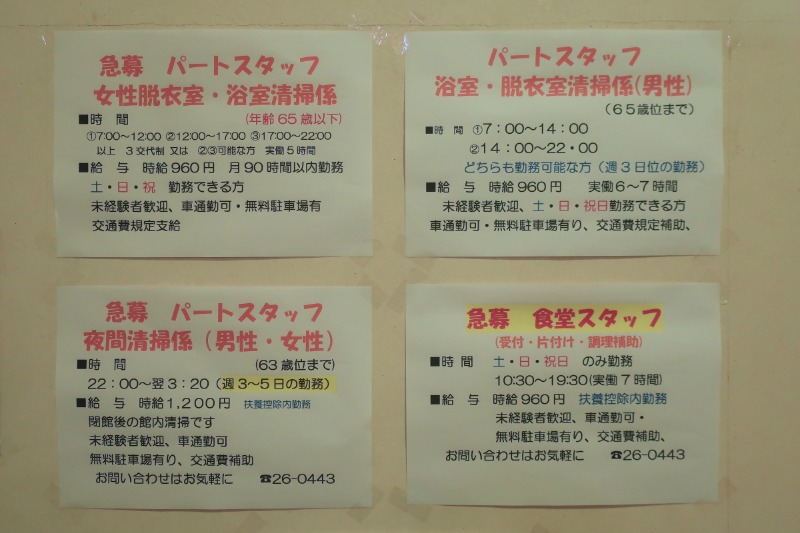 急募 パートスタッフ
女性脱衣室・浴室清掃係
■時 間 (年齢65歳以下)
①7:00～12:00 ②12:00～17:00 ③17:00～22:00
以上 3交代制 又は ②③可能な方 実働5時間
■給 与 時給960円 月90時間以内勤務
土・日・祝 勤務できる方
未経験者歓迎、車通勤可・無料駐車場有
交通費規定支給
パートスタッフ
浴室・脱衣室清掃係(男性)
(65歳位まで)
■時 間 ①7:00～14:00
②14:00～22・00
どちらも勤務可能な方(週3日位の勤務)
■給 与 時給960円 実働6～7時間
未経験者歓迎、土・日・祝日勤務できる方
車通勤可・無料駐車場有り、交通費規定補助、
急募 パートスタッフ
夜間清掃係(男性・女性)
■時 間 (63歳位まで)
22:00～翌3:20(週3～5日の勤務)
■給 与 時給1,200円 扶養控除内勤務
閉館後の館内清掃です
未経験者歓迎、車通勤可
無料駐車場有り、交通費補助
お問い合わせはお気軽に ☎26-0443
急募 食堂スタッフ
(受付・片付け・調理補助)
■時 間 土・日・祝日 のみ勤務
10:30～19:30(実働7時間)
■給 与 時給960円 扶養控除内勤務
■未経験者歓迎、車通勤可・
無料駐車場有り、交通費補助、
お問い合わせはお気軽に ☎26-0443